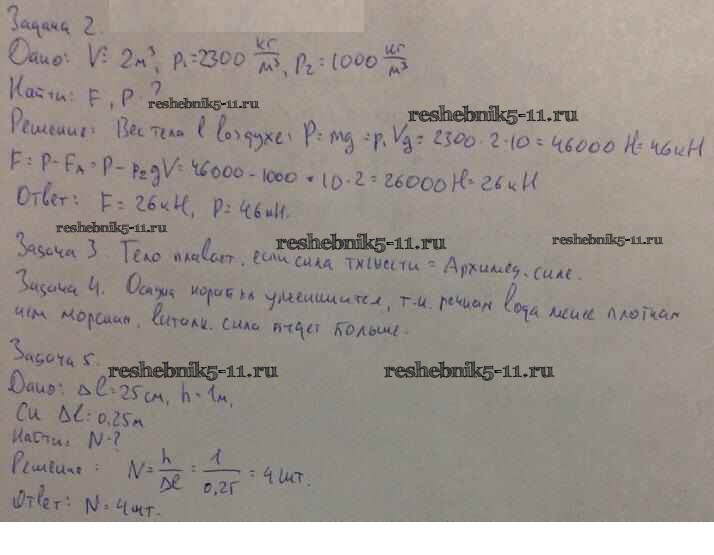 Задача 2.
Дано: V= 2м³, ρ₁=2300 кг/м³, ρ₂=1000 кг/м³
Найти: F, P-?
reshebnik5-11.ru
reshebnik5-11.ru
Решение: Вес тела в воздухе: P=mg=ρ₁Vg=2300·2·10=46000 Н=46кН
F=P-Fₐ=P-ρ₂gV=46000-1000*10·2=26000Н=26кН
Ответ: F=26кН, P=46кН.
reshebnik5-11.ru
reshebnik5-11.ru
reshebnik5-11.ru
Задача 3. Тело плавает, если сила тяжести = Архимед. силе.
Задача 4. Осадка корабля уменьшится, т.к. речная вода менее плотная
чем морская, выталк. сила будет больше.
Задача 5.
reshebnik5-11.ru
reshebnik5-11.ru
Дано: Δl=25см, h=1м,
Си Δl=0,25м
Найти: N-?
Решение: N=h/Δl=1/0,25=4шт.
Ответ: N=4шт.